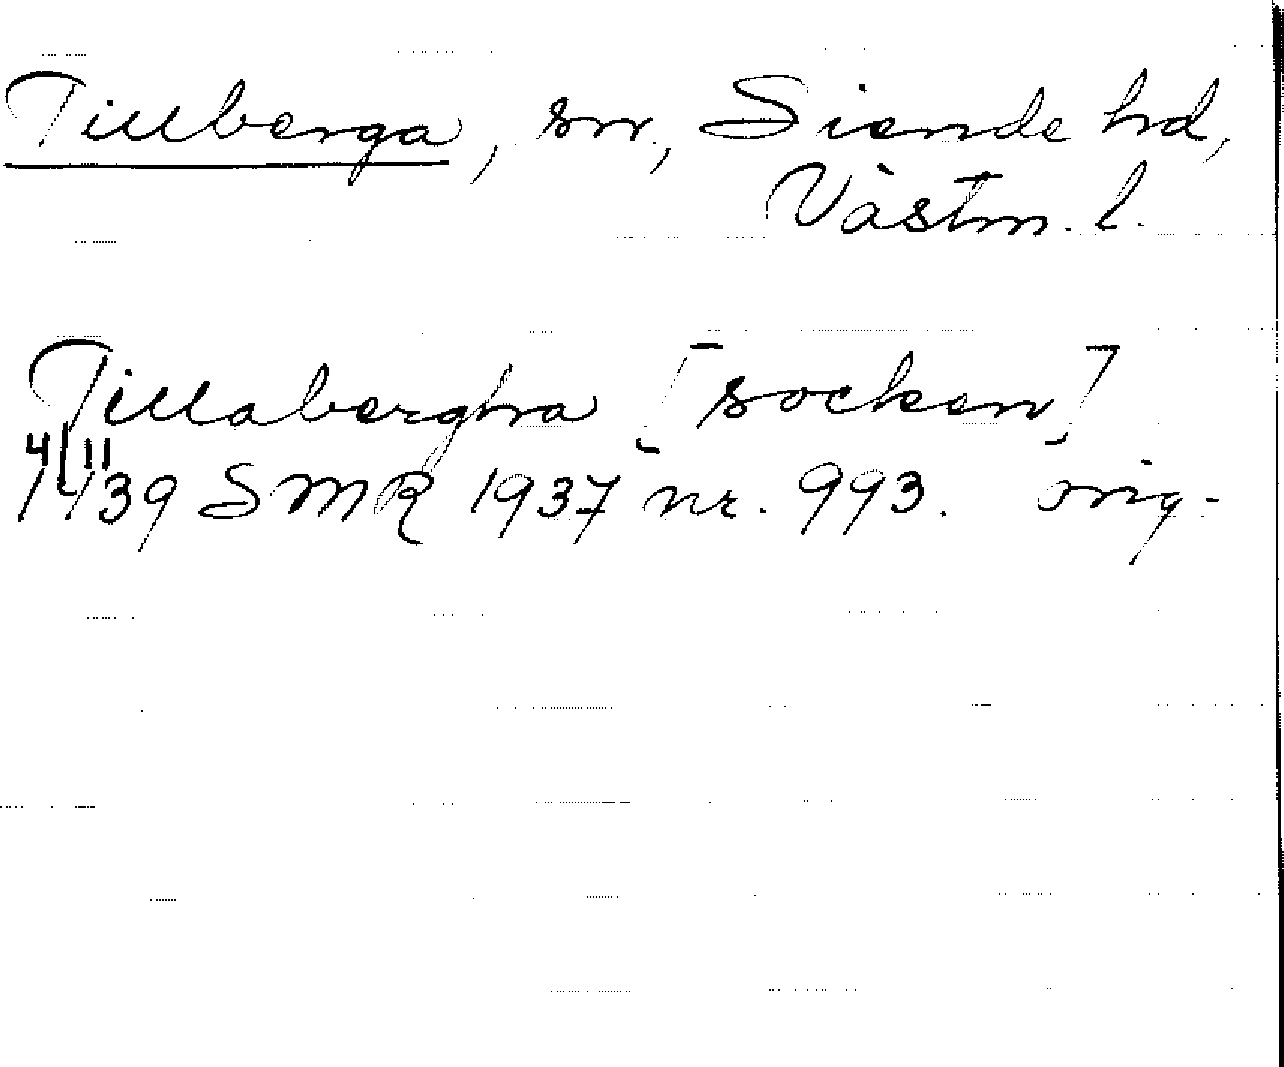 Tillberga, sn, Siende hd,
Västm. l.
Tillabergha [socken]
4/11
1439 SMR 1937 nr. 993. orig.